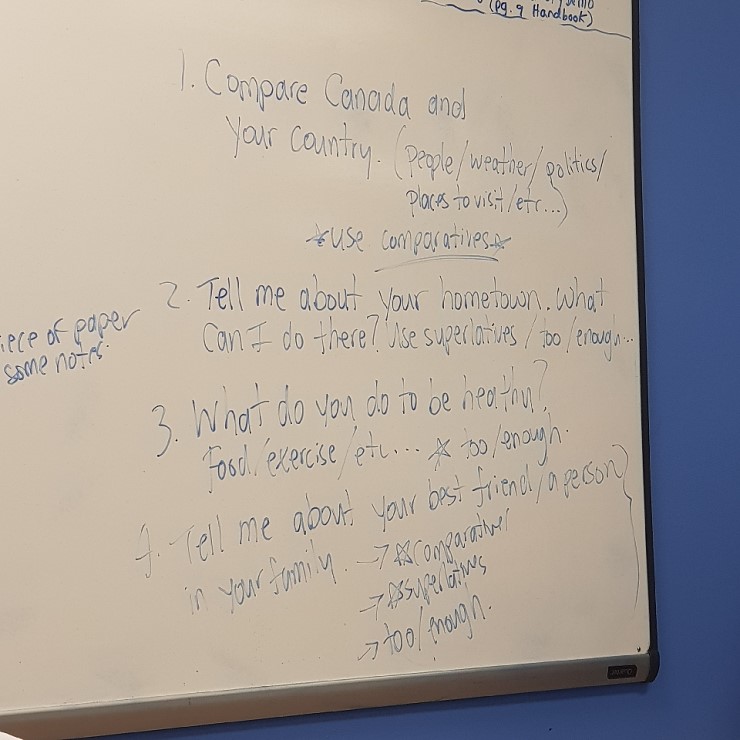 (pg. 9 Handbook)
1. Compare Canada and
your country. (people/weather/politics/
places to visit/etc...)
*use comparatives*
2. Tell me about your hometown. What
can I do there? Use superlatives/too/enough...
piece of paper
some notes.
3. What do you do to be healthy?
food/exercise/etc... * too/enough.
4. Tell me about your best friend/a person
in your family. → *comparatives
→ *superlatives
→ too/enough.